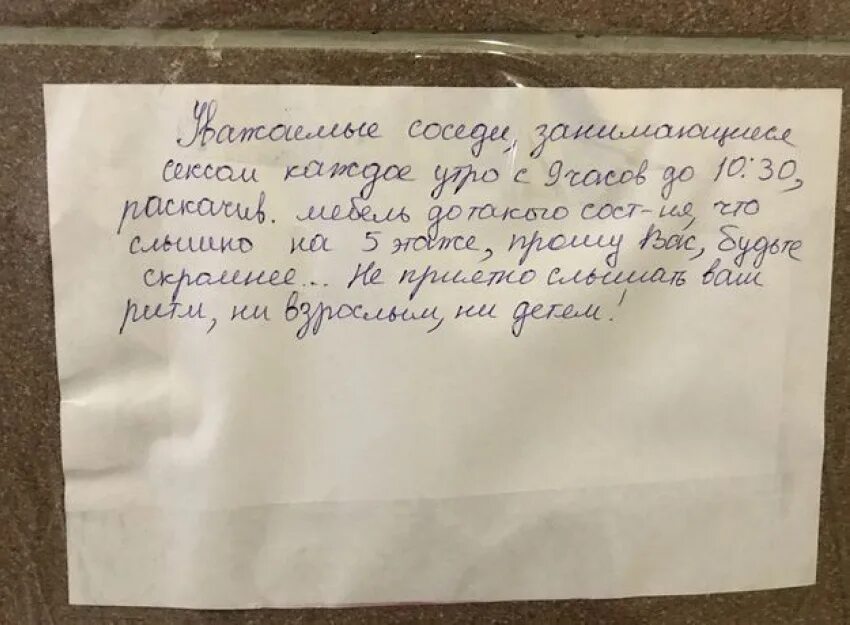 Уважаемые соседи, занимающиеся
сексом каждое утро с 9 часов до 10:30,
раскачив. мебель до такого сост-ия, что
слышно на 5 этаже, прошу Вас, будьте
скромнее... Не приятно слышать ваш
ритм, ни взрослым, ни детем!